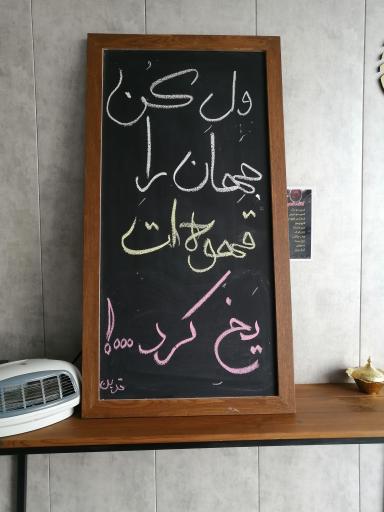 ول کُن
جهانِ را
قهوه ات
یخ کرد ...!